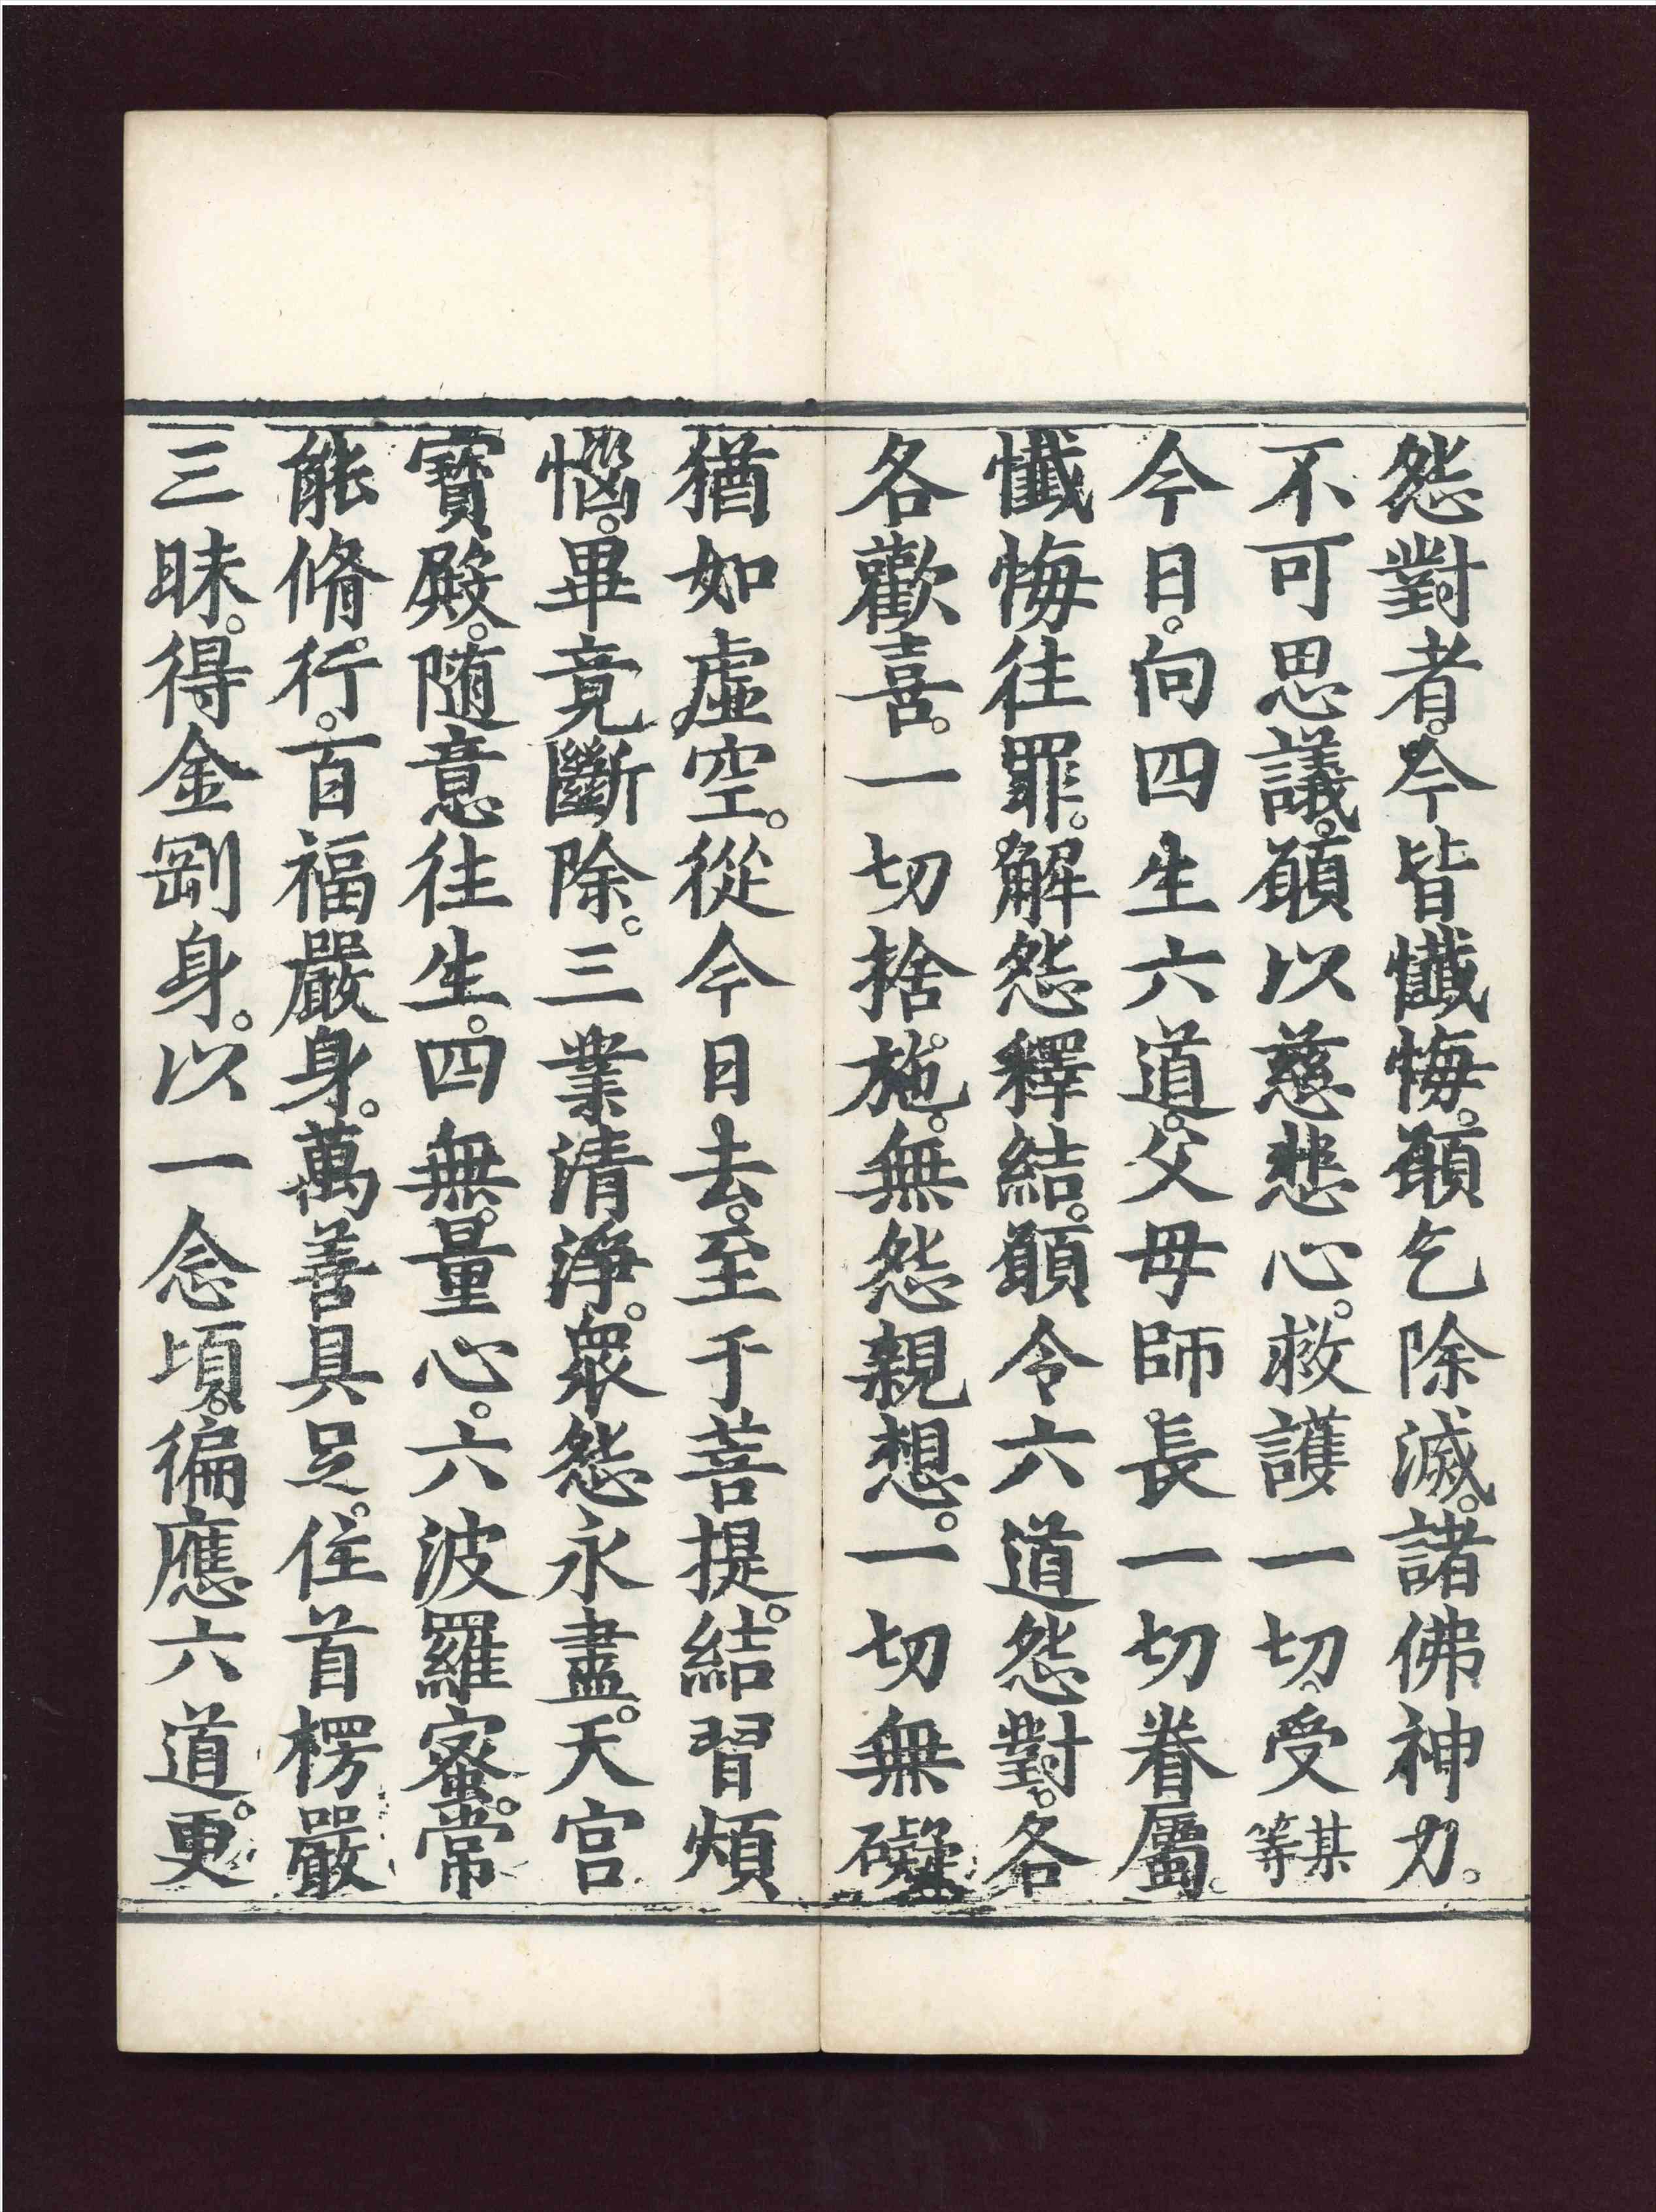 怨對者。今皆懺悔。願乞除滅。諸佛神力。
不可思議。願以慈悲心。救護一切。受某等
今日。向四生六道。父母師長一切眷屬。
懺悔往罪。解怨釋結。願令六道怨對。各
各歡喜。一切捨施。無怨親想。一切無礙
猶如虛空。從今日去。至于菩提。結習煩
惱。畢竟斷除。三業清淨。衆怨永盡。天宮
寶殿。随意往生。四無量心。六波羅蜜。常
能脩行。百福嚴身。萬善具足。住首楞嚴
三昧。得金剛身。以一念頃。徧應六道。更